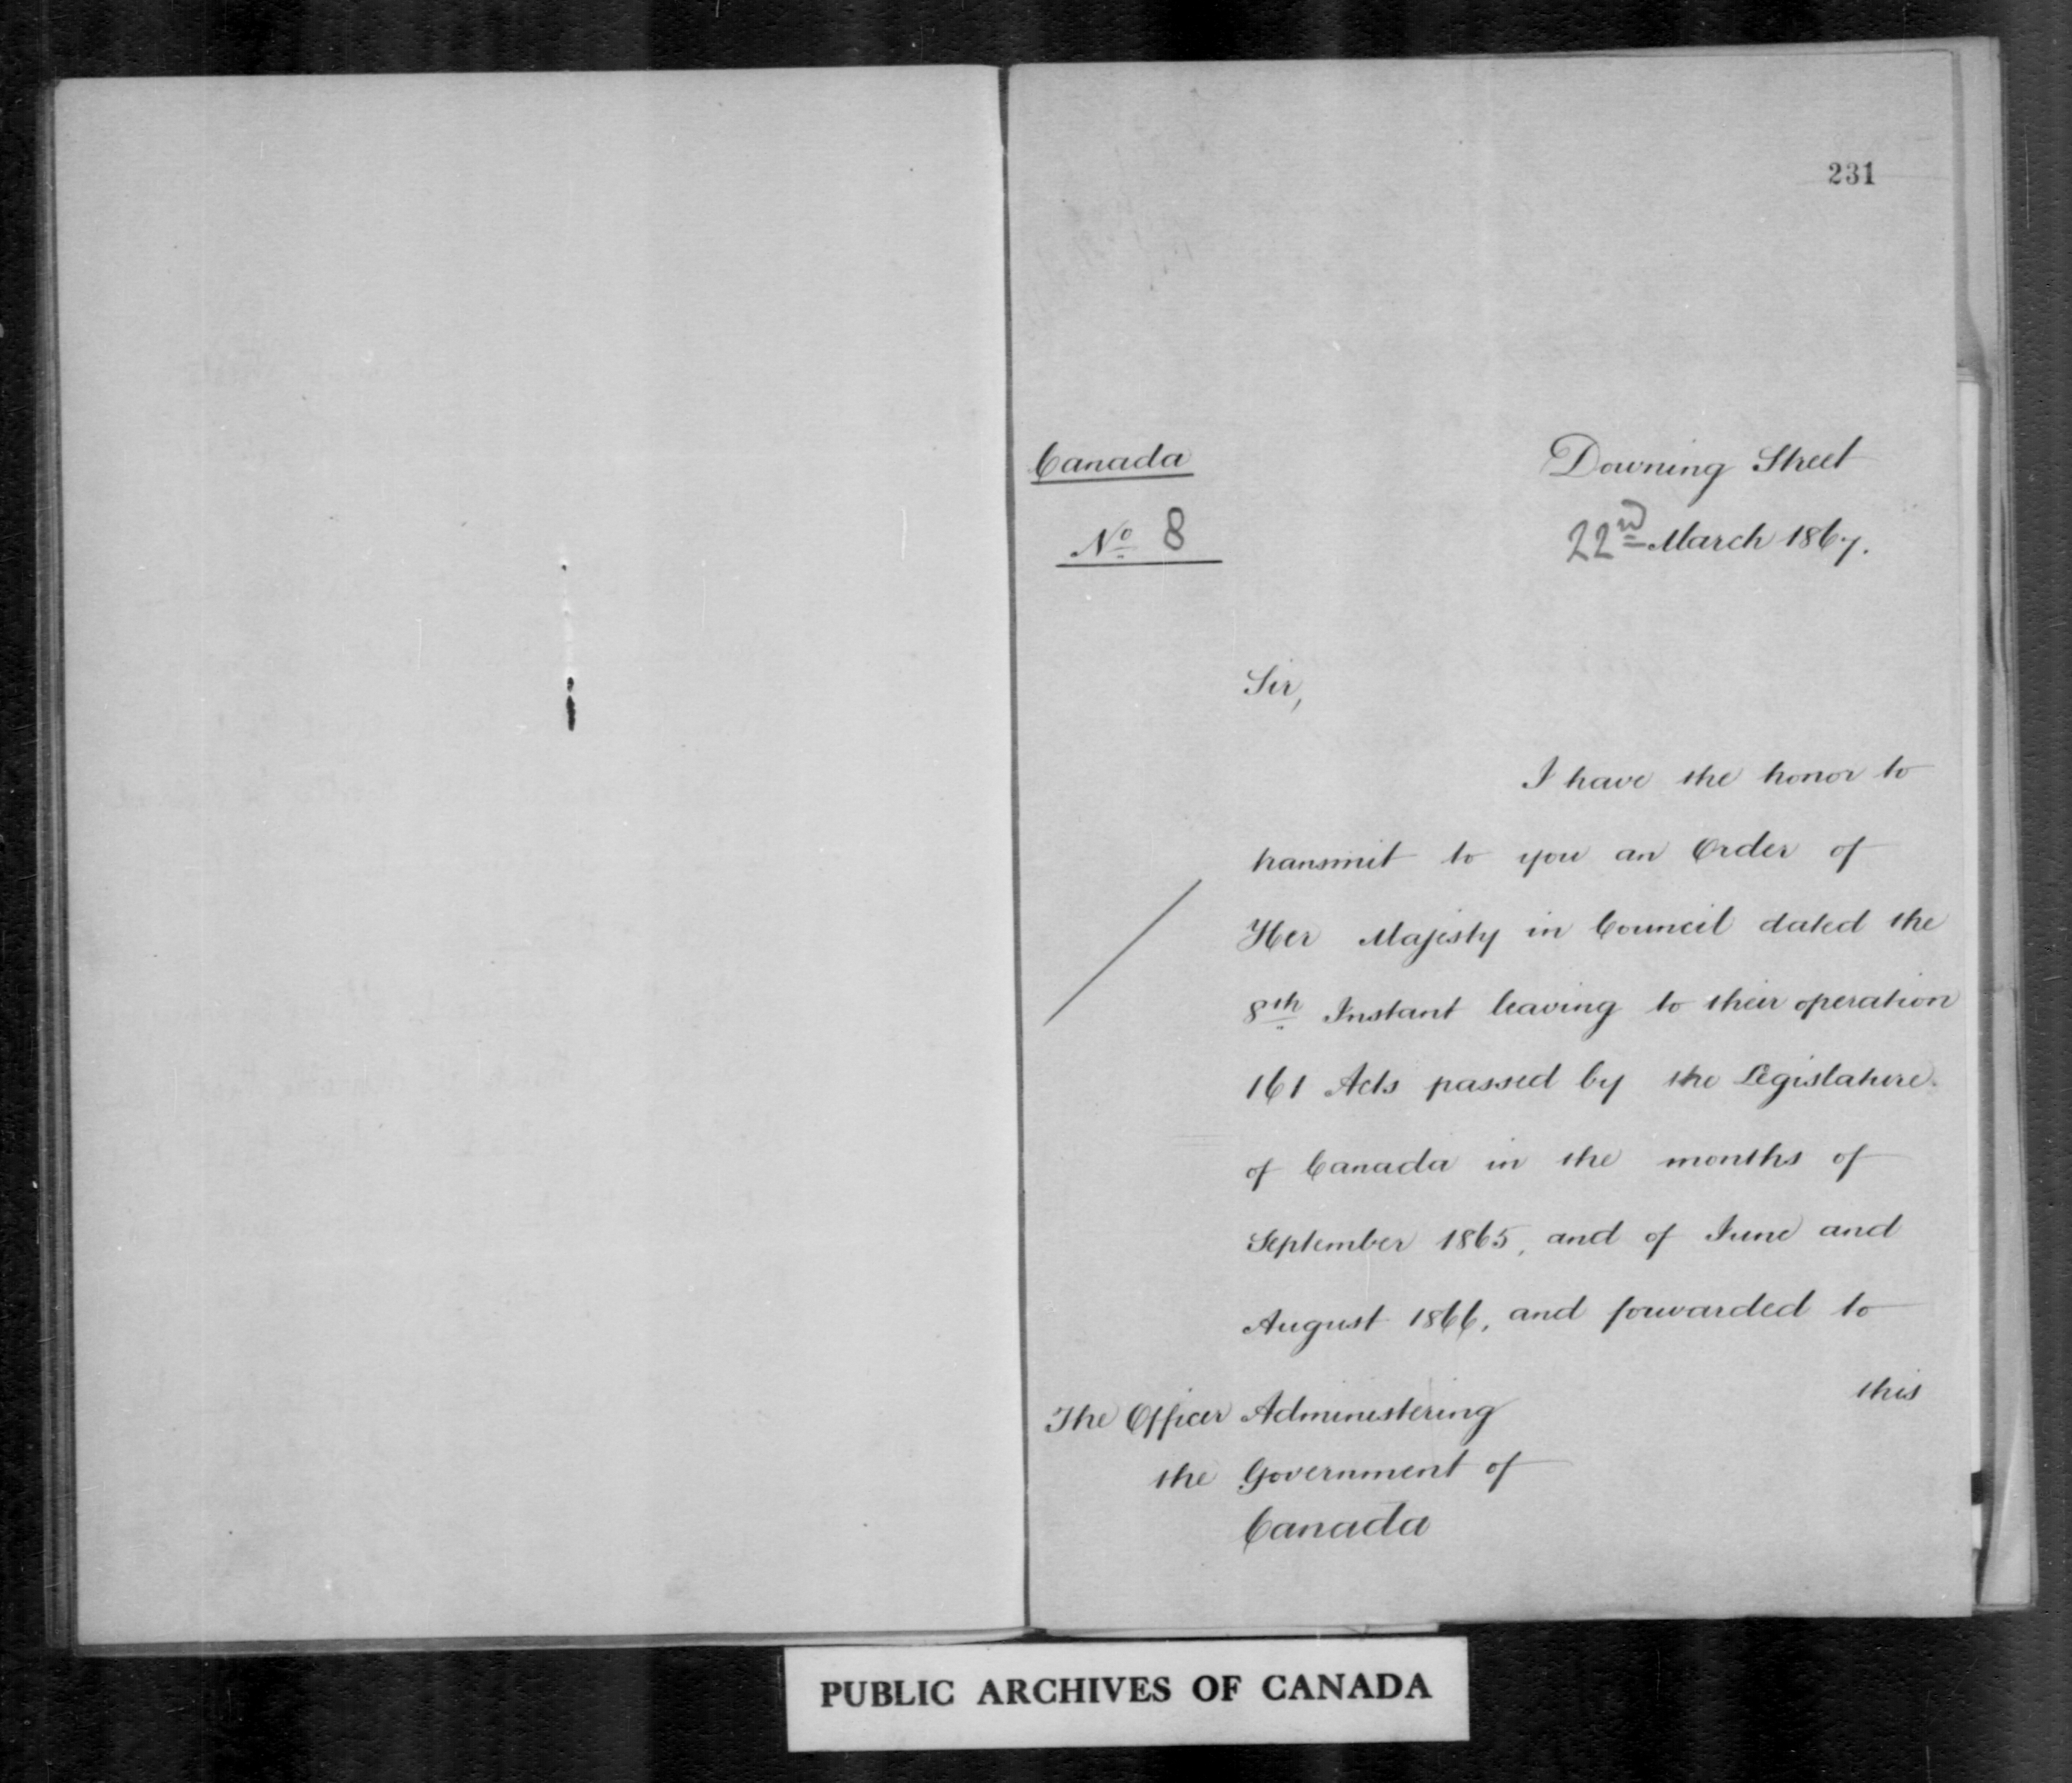 231
Canada
Downing Street
No 8
22nd March 1867.
Sir,
I have the honor to
transmit to you an Order of
Her Majesty in Council dated the
8th Instant leaving to their operation
161 Acts passed by the Legislature
of Canada in the months of
September 1865, and of June and
August 1866, and forwarded to
this
The Officer Administering
the Government of
Canada
PUBLIC ARCHIVES OF CANADA